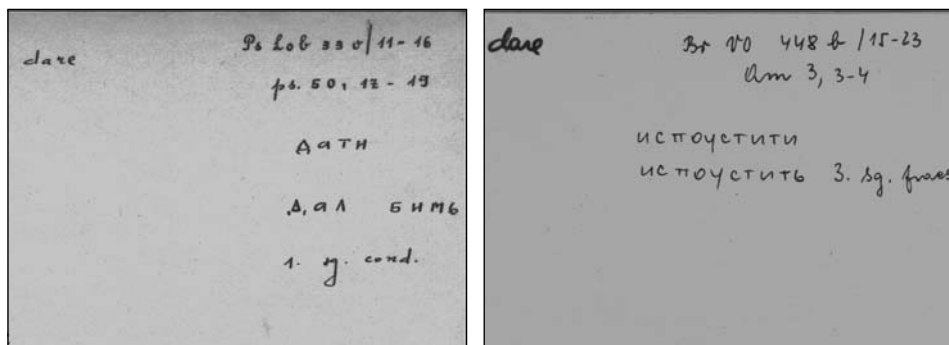 dare
Ps Lob 33 v/11-16
ps. 50, 17-19
дати
дал бимь
1. sg. cond.
dare
Br VO 448 b /15-23
Am 3, 3-4
испоустити
испоустить 3. sg. praes